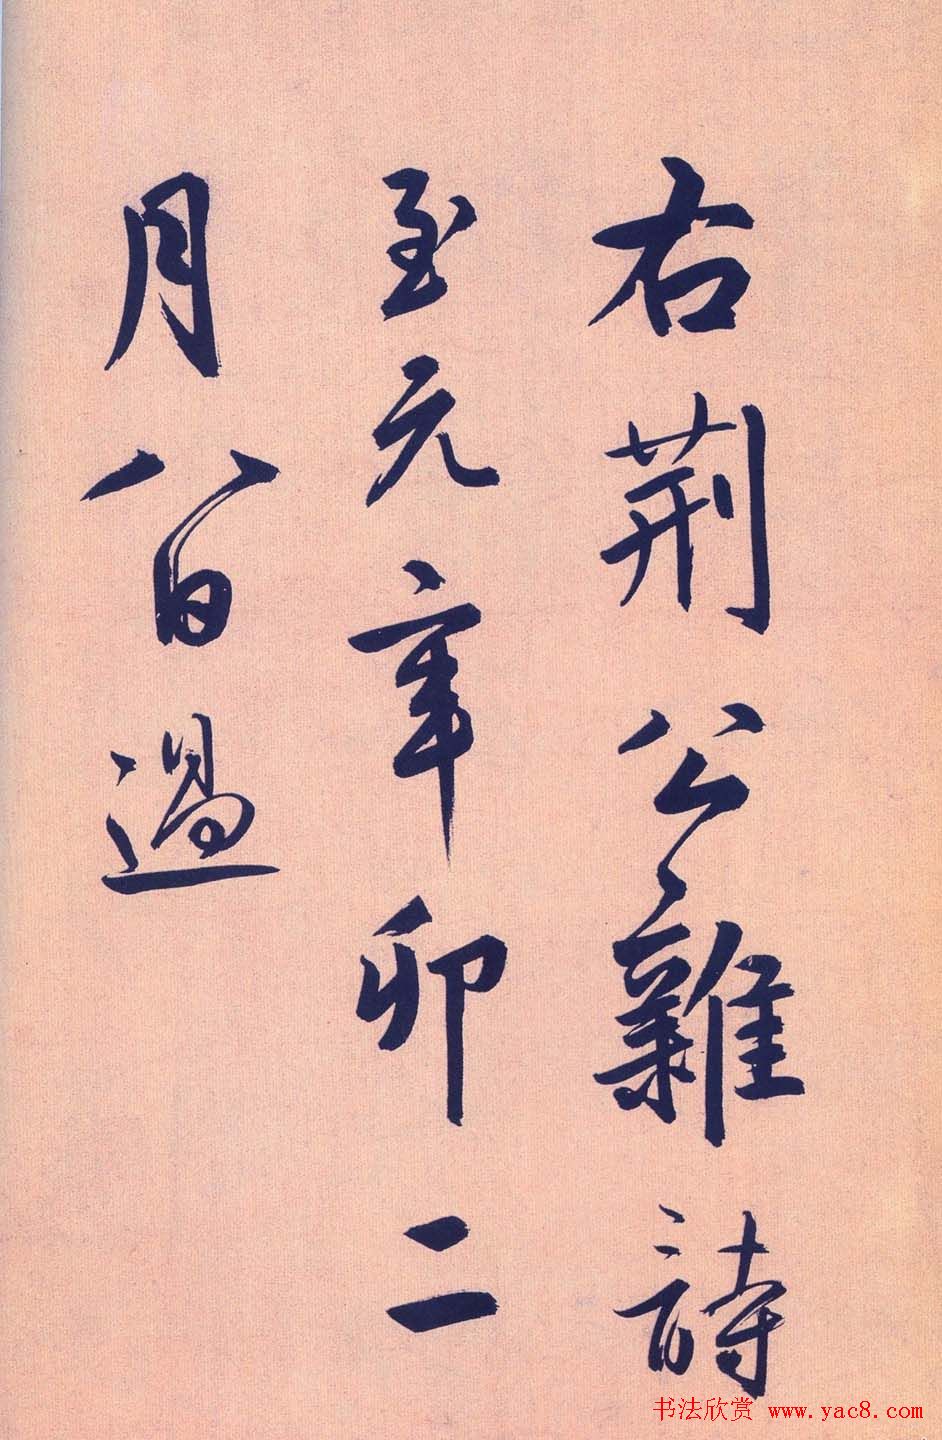 右荆公雜詩
至元辛卯二
月八日過
书法欣赏 www.yac8.com